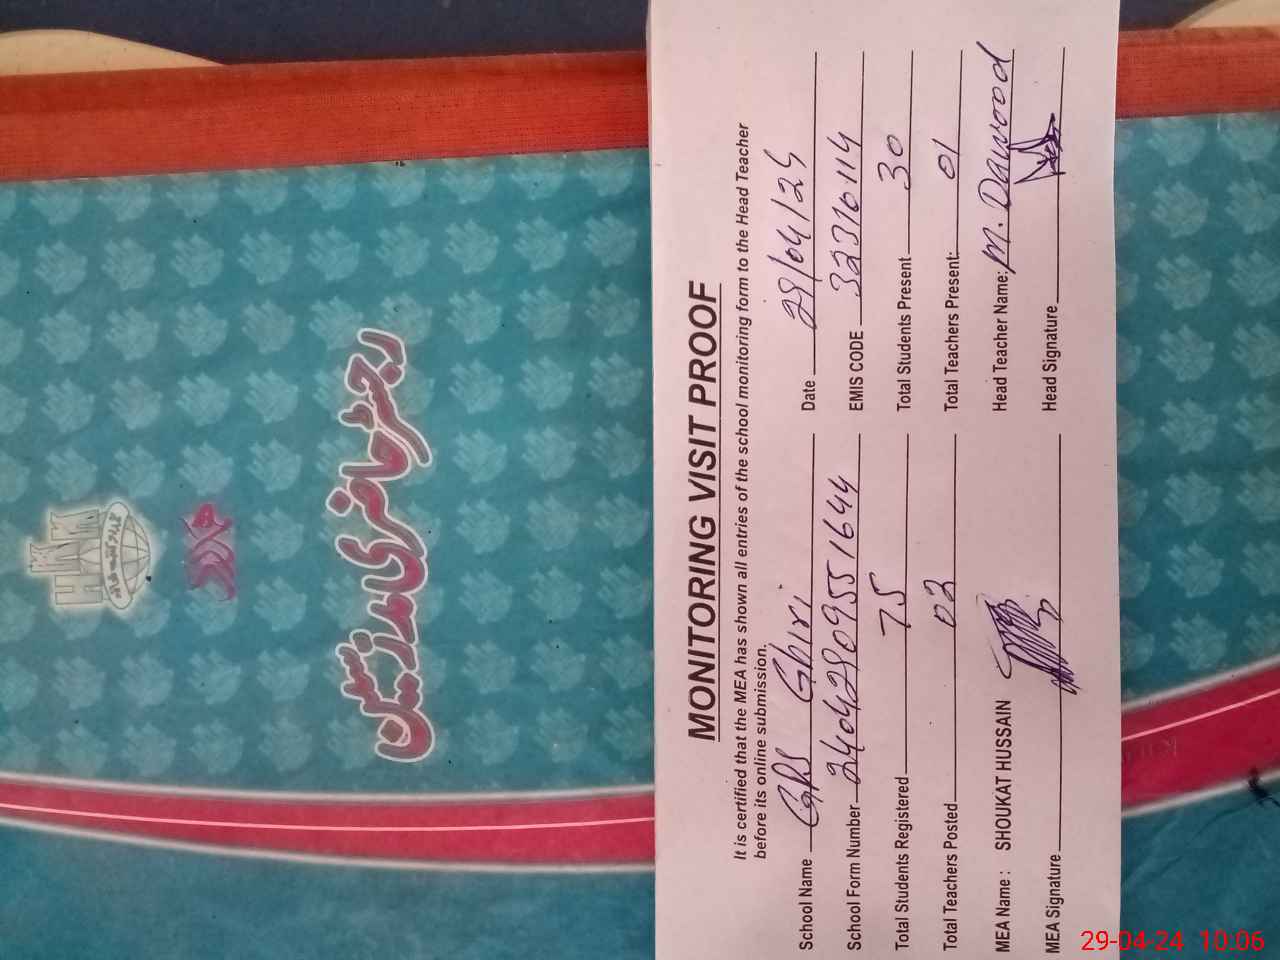 MONITORING VISIT PROOF
It is certified that the MEA has shown all entries of the school monitoring form to the Head Teacher
before its online submission.
School Name GPS Ghiri Date 29/04/24
School Form Number 24042909551644 EMIS CODE 32310114
Total Students Registered 75 Total Students Present 30
Total Teachers Posted 02 Total Teachers Present: 01
MEA Name : SHOUKAT HUSSAIN Head Teacher Name: M. Dawood
MEA Signature Head Signature
HKM
رجسٹر حاضری مدرسین
29-04-24 10:06